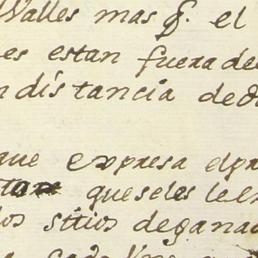 Valles mas q. el
es estan fuera de
n distancia de d
que expresa el pr
que se les le
los sitios de gana